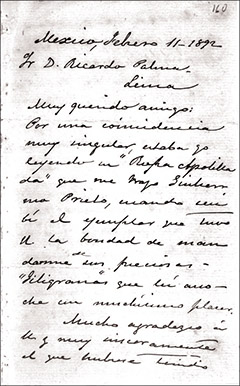 160
Mexico, Febrero 11-1892
Sr D. Ricardo Palma.
Lima
Muy querido amigo:
Por una coincidencia
muy singular, estaba yo
leyendo su "Ropa Apolilla
da" que me trajo Guiller-
mo Prieto, cuando reci
bí el ejemplar que tuvo
U. la bondad de man
darme de sus preciosas
"Filigranas" que leí ano-
che con muchísimo placer.
Mucho agradezco á
U. y muy sinceramente
el que hubiese tenido